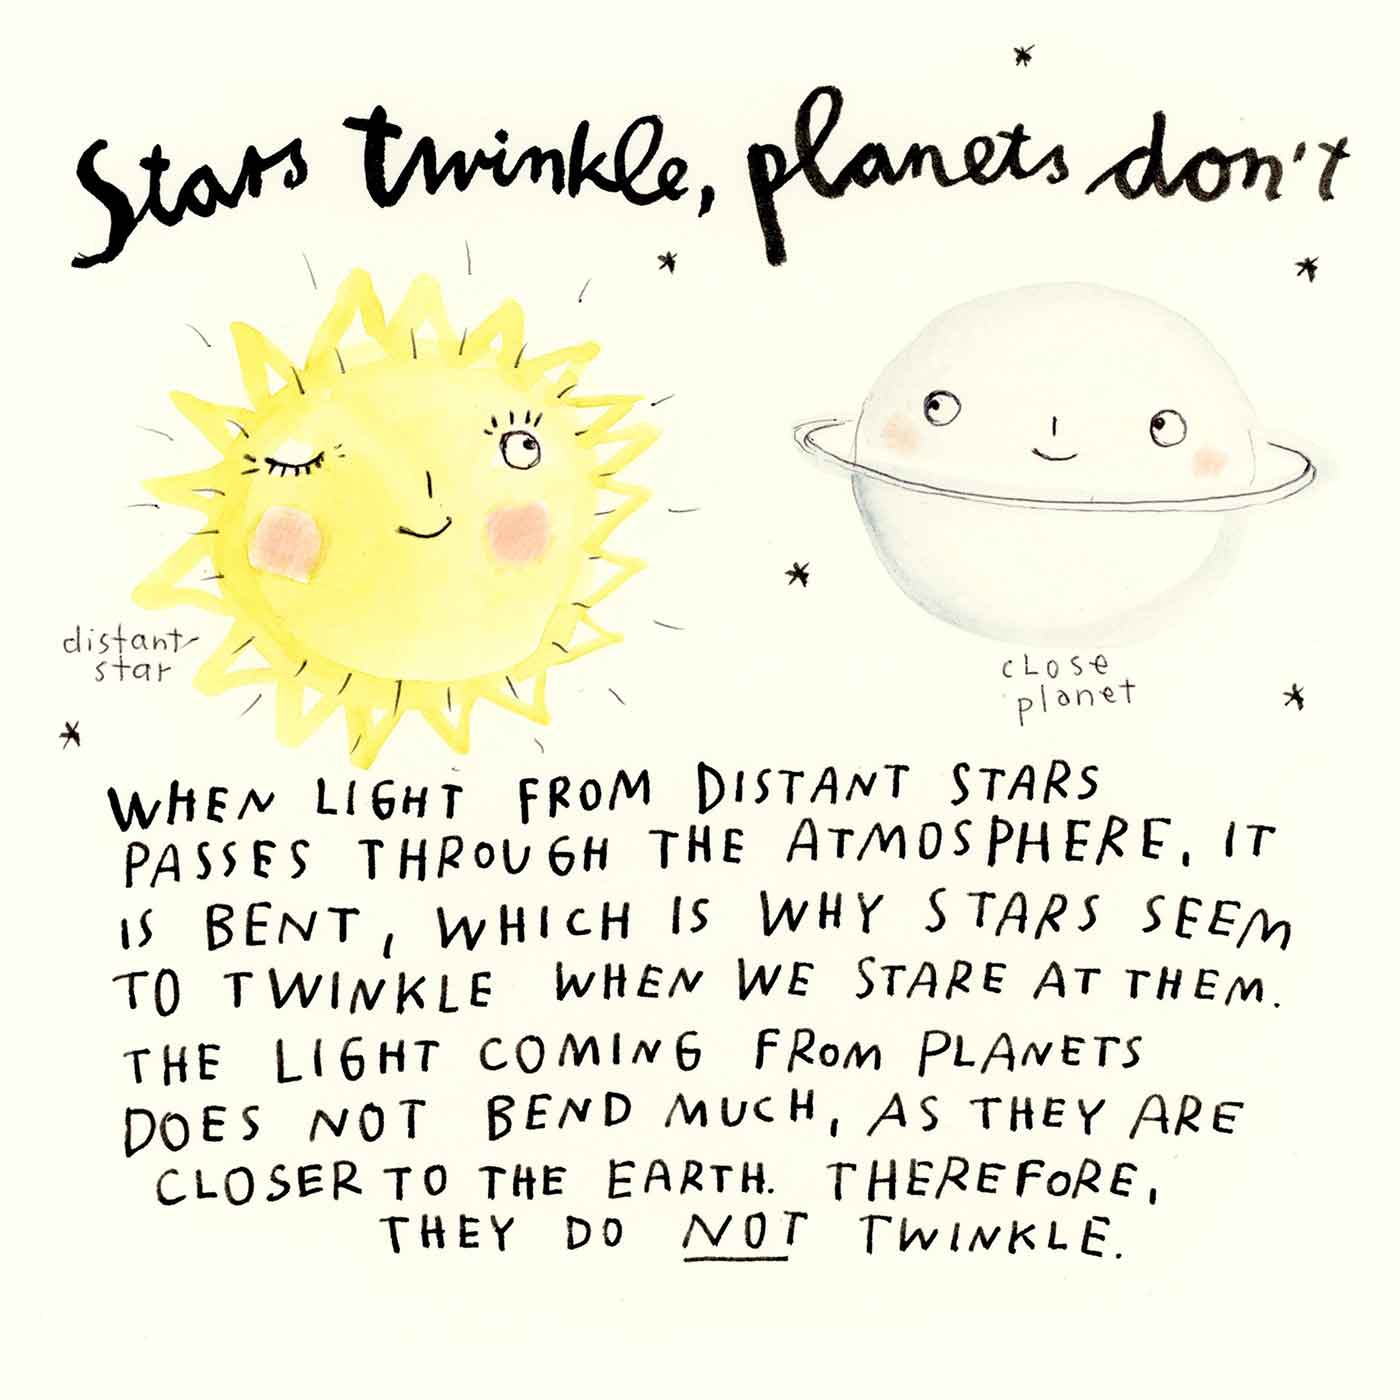 Stars twinkle, planets don't
distant
star
close
planet
WHEN LIGHT FROM DISTANT STARS
PASSES THROUGH THE ATMOSPHERE, IT
IS BENT, WHICH IS WHY STARS SEEM
TO TWINKLE WHEN WE STARE AT THEM.
THE LIGHT COMING FROM PLANETS
DOES NOT BEND MUCH, AS THEY ARE
CLOSER TO THE EARTH. THEREFORE,
THEY DO NOT TWINKLE.